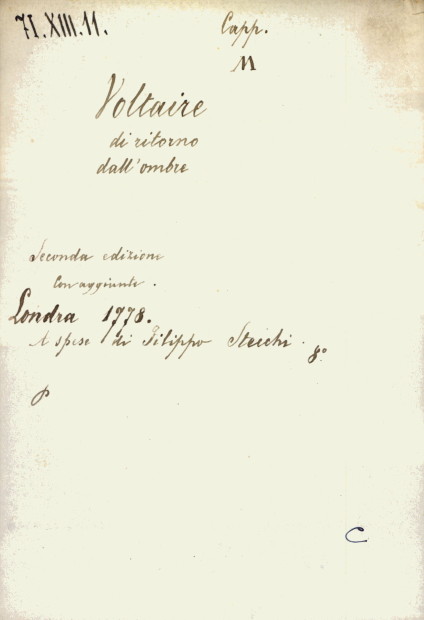 71.XIII.11.
Capp.
M
Voltaire
di ritorno
dall'ombre
Seconda edizione
con aggiunte.
Londra 1778.
A spese di Filippo Stecchi. 8°
P
C